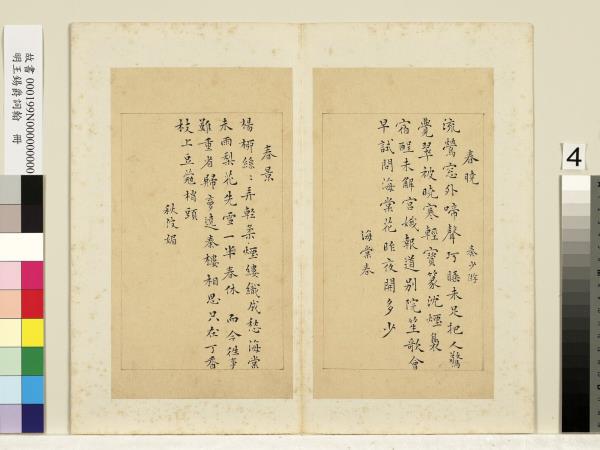 春曉 秦少游
流鶯窓外啼聲巧睡未足把人驚
覺翠被曉寒輕寶篆沉煙裊
宿酲未解宮娥報道別院笙歌會
早試問海棠花昨夜開多少
海棠春
春景
楊柳絲〻弄輕柔煙縷織成愁海棠
未雨梨花先雪一半春休 而今往事
難重省歸夢遶秦樓相思只在丁香
枝上豆蔻梢頭
秋波媚
故書000199N0000000000
明王錫爵詞翰 冊
4